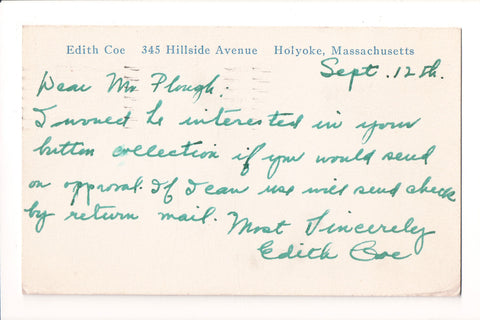 Edith Coe 345 Hillside Avenue Holyoke, Massachusetts
Sept. 12th.
Dear Mr. Plough:
I would be interested in your
button collection if you would send
on approval. If I can use will send check
by return mail.
Most Sincerely
Edith Coe